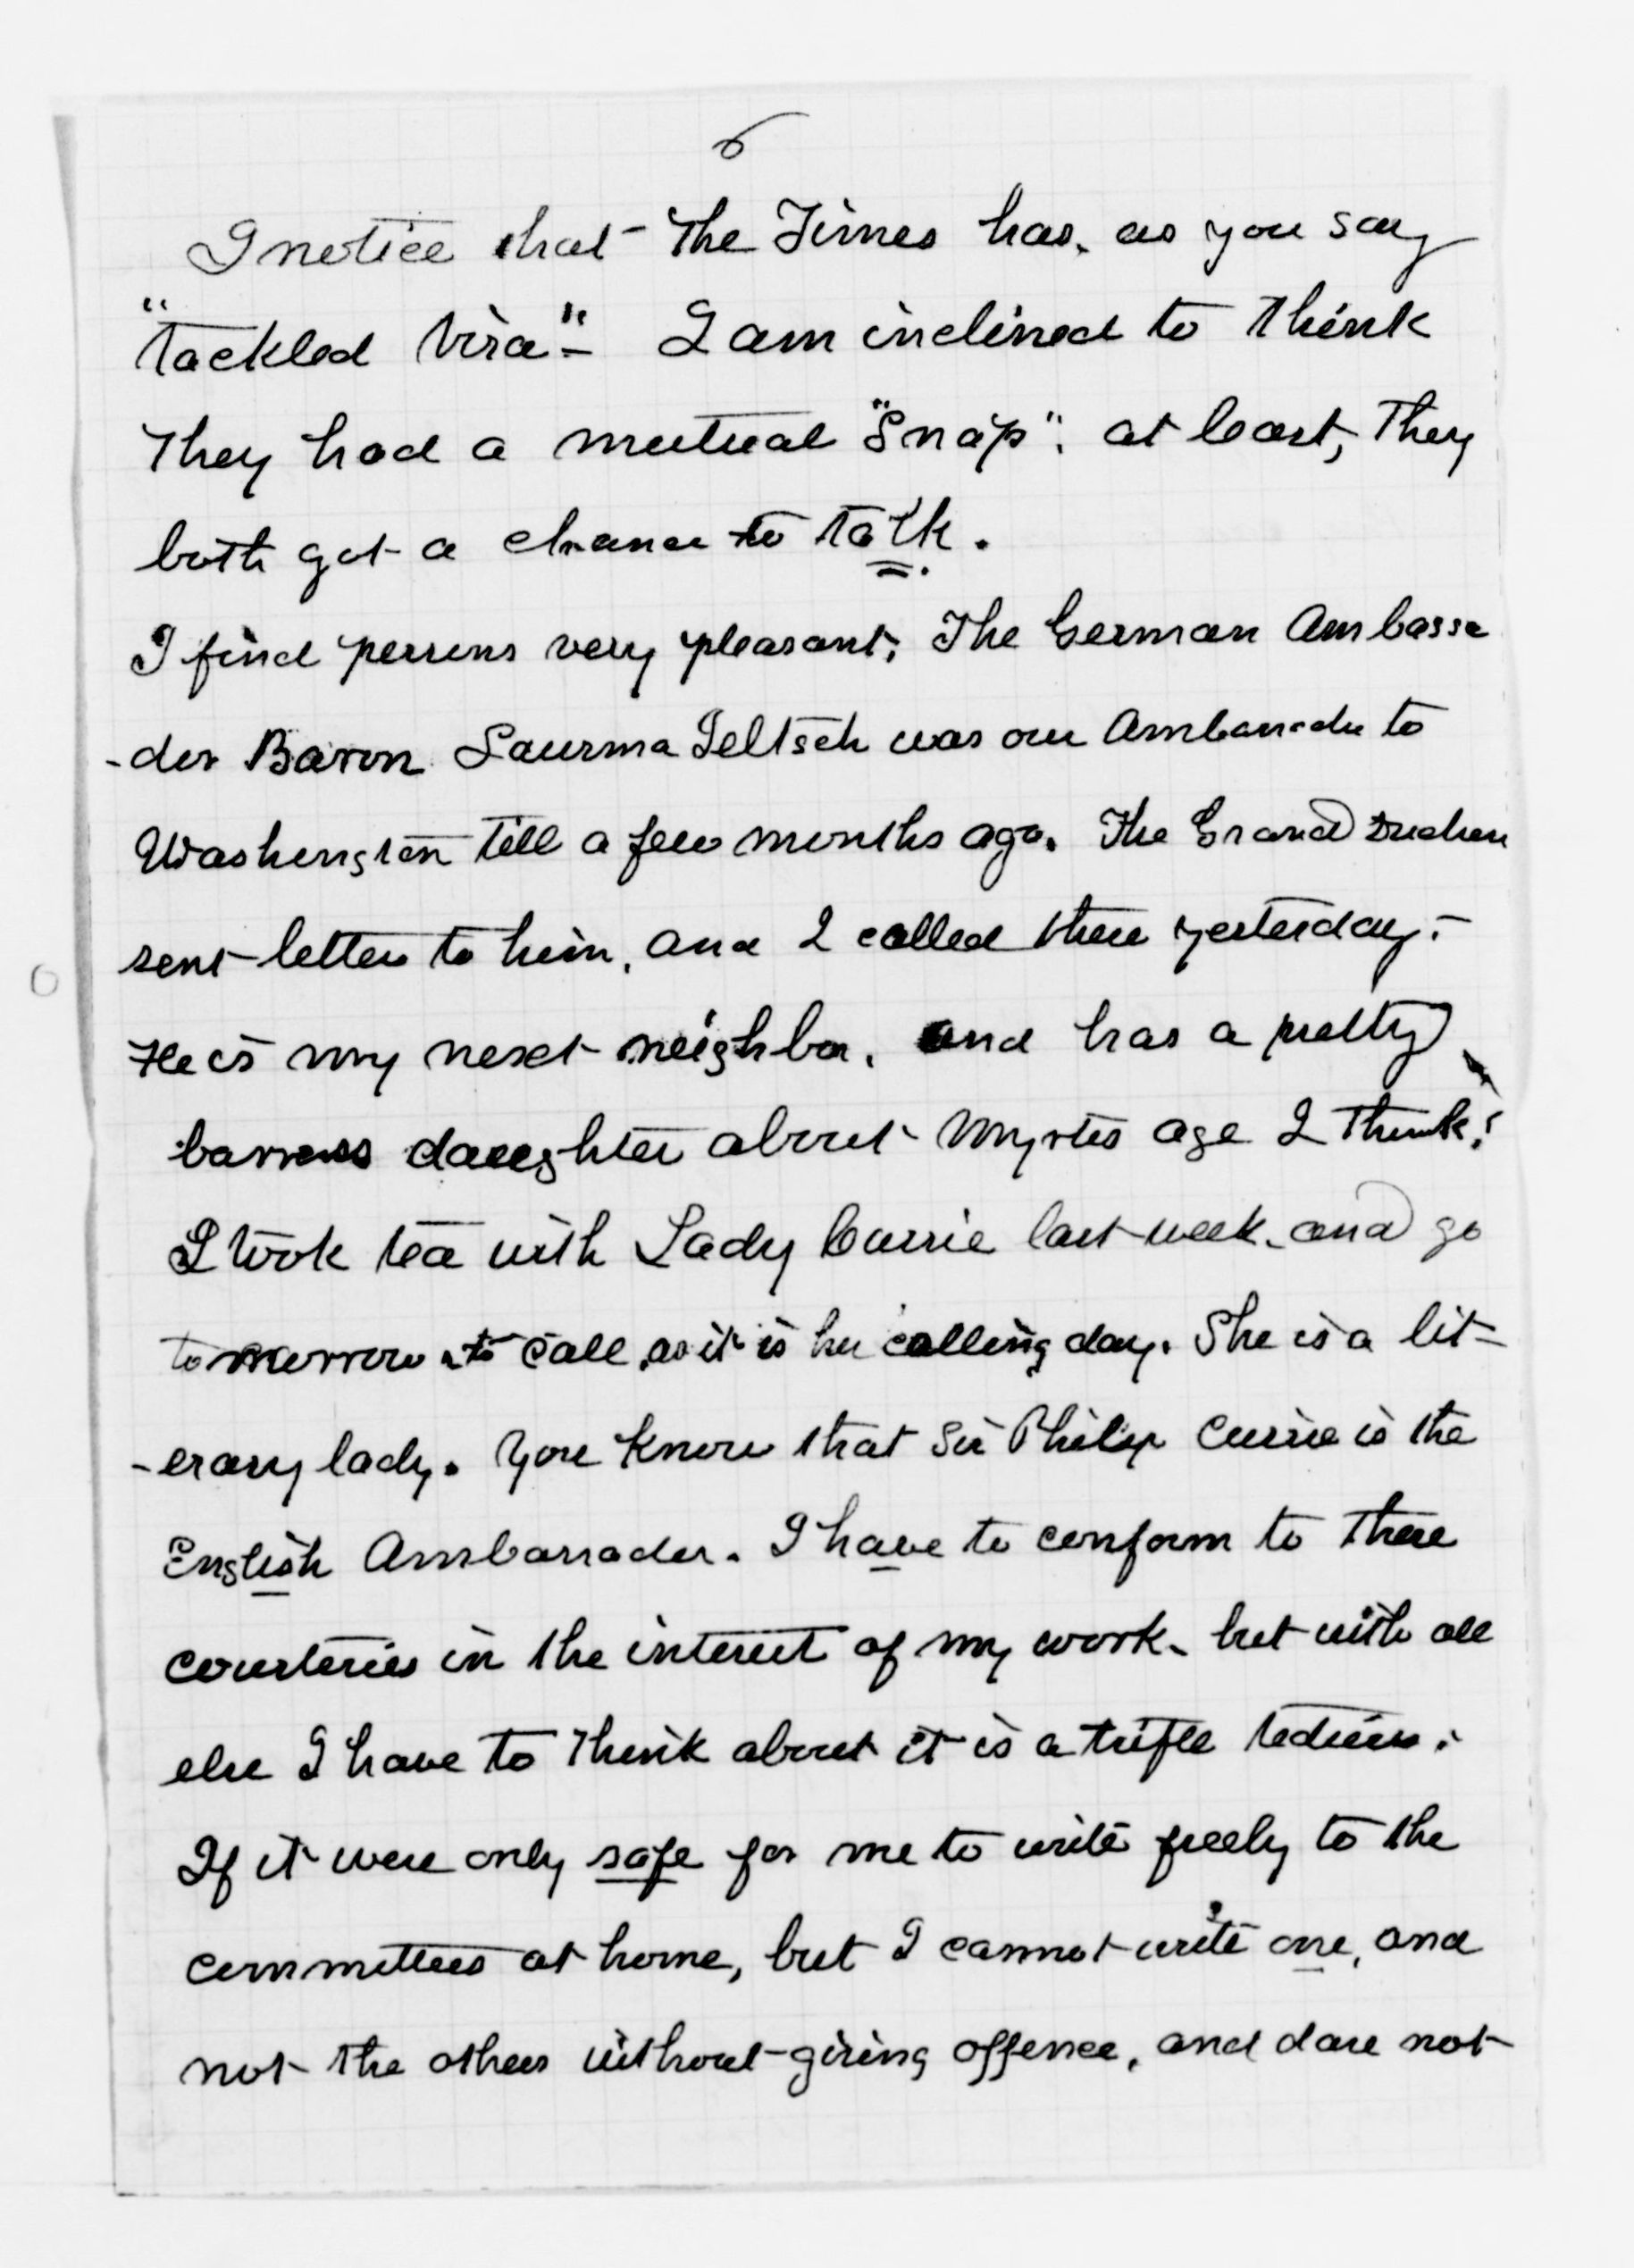 6
I notice that The Times has, as you say
"tackled Vira" - I am inclined to think
They had a mutual "Snap": at least, They
both got a chance to talk.
I find persons very pleasant; The German Ambassa
-dor Baron Saurma Jeltsch was our Ambassador to
Washington till a few months ago. The Grand Duchess
sent letter to him, and I called there yesterday. -
He is my next neighbor, and has a pretty
baroness daughter about Myrtis age I think.
I took tea with Lady Currie last week, and go
tomorrow to call, as it is her calling day. She is a lit-
-erary lady. You know that Sir Philip Currie is the
English Ambassador. I have to conform to these
courtesies in the interest of my work, but with all
else I have to think about it is a trifle tedious.
If it were only safe for me to write freely to the
committees at home, but I cannot write one, and
not the others without giving offence, and dare not